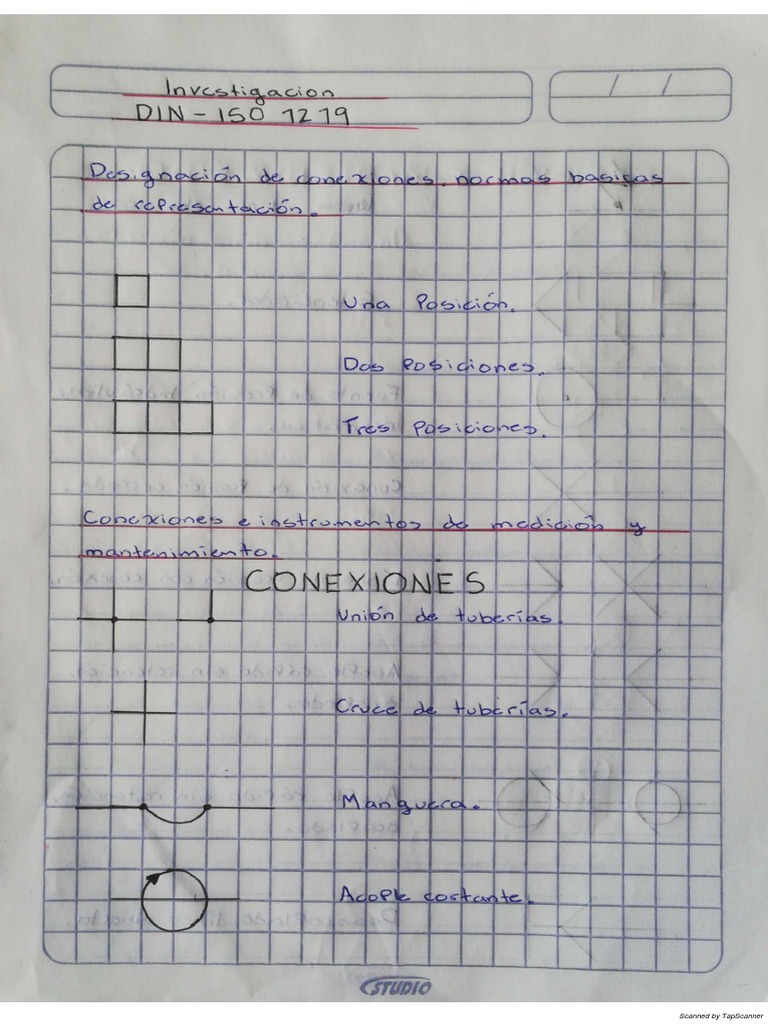 Investigacion
DIN - ISO 1219
Designación de conexiones, normas basicas
de representación.
Una Posición.
Dos Posiciones.
Tres Posiciones.
Conexiones e instrumentos de medición y
mantenimiento.
CONEXIONES
Unión de tuberías.
Cruce de tuberías.
Manguera.
Acople costante.
STUDIO
Scanned by TapScanner